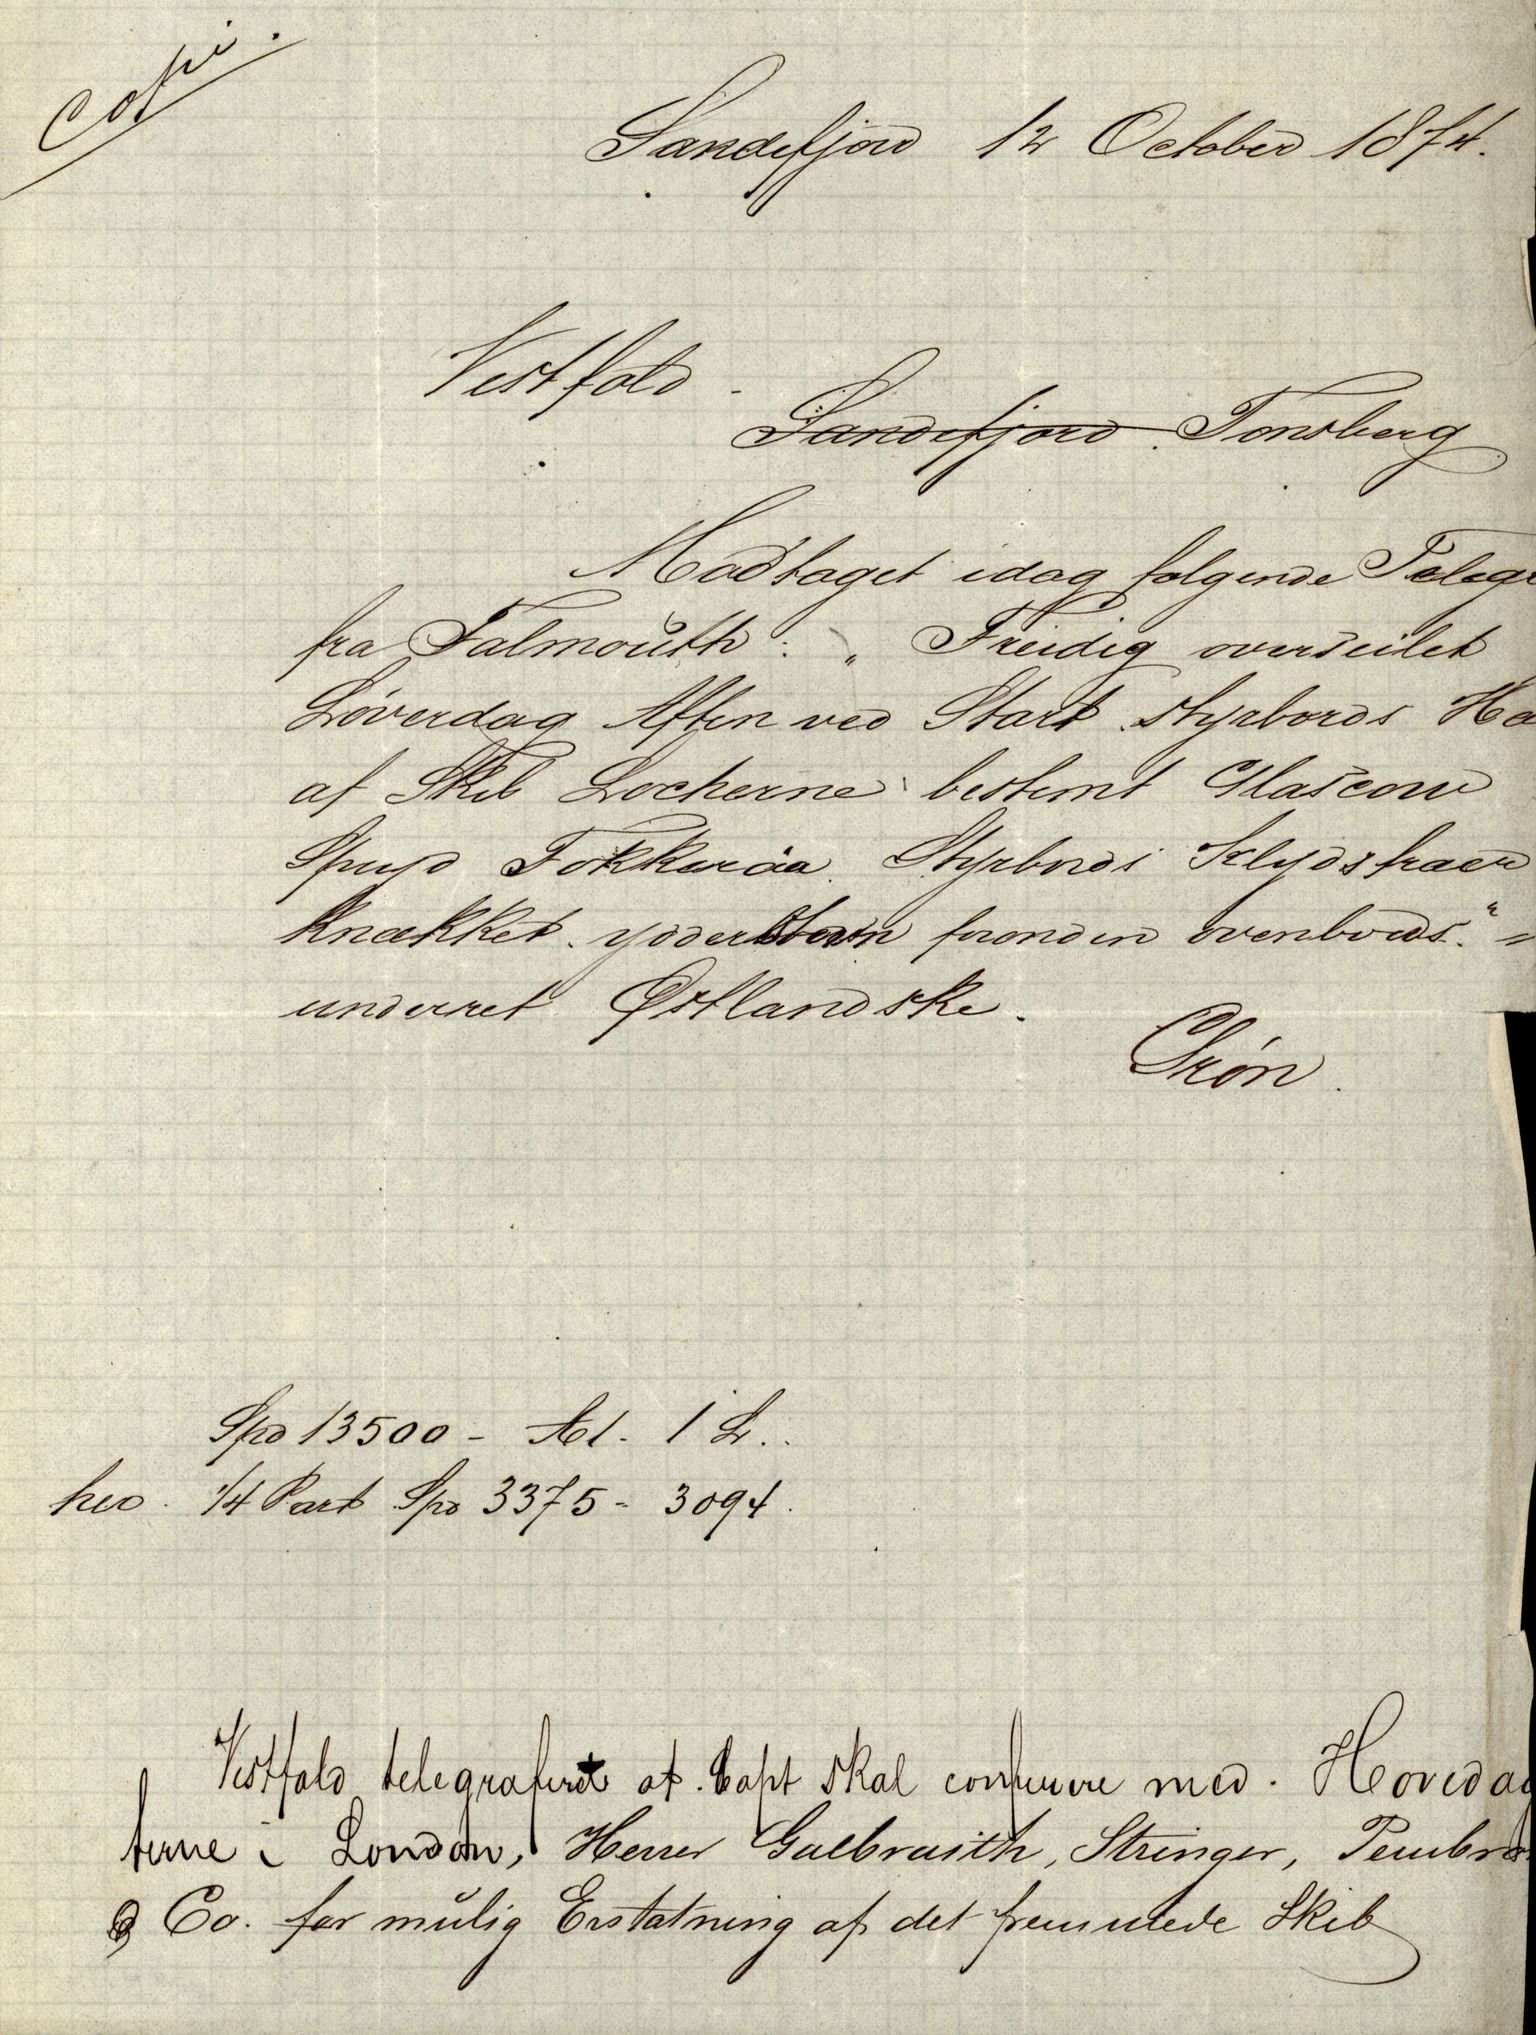 Copi.
Sandefjord 12 October 1874.
Vestfold -
Sandefjord. Tonsberg
Modtaget idag følgende Telegr
fra Falmouth: „Freidig overseilet
Löverdag Aften ved Start Styrbords Ha
af Skib Locherne bestemt Glascow
Spryd Fokkeraa Styrbords Klydstræer
knækket. yderstevn forenden overbords."
underret Østlandske.
Grön.
Spd 13500 - A1. 1 L..
her. 1/4 Part Spd 3375 - 3094.
Vestfold telegraferet at Capt skal conferere med. Hovedag
terne i London, Herrer Galbraith, Stringer, Pembro
& Co. for mulig Erstatning af det fremmede Skib